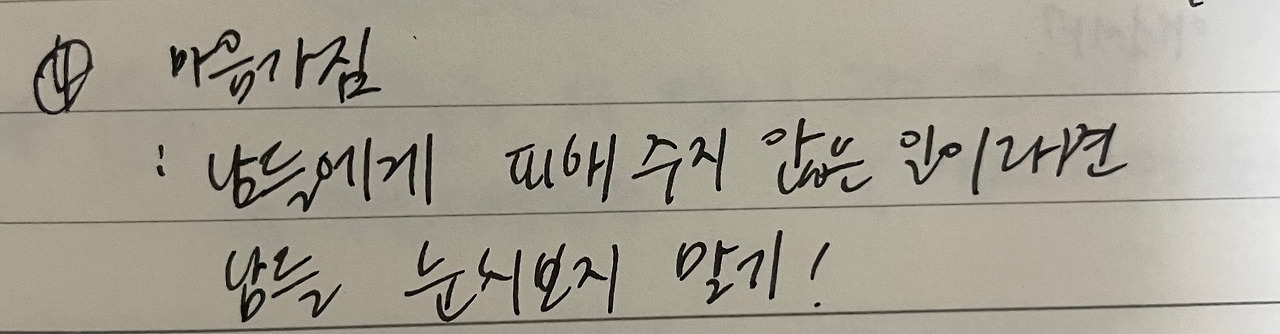 ④ 마음가짐
: 남들에게 피해 주지 않은 일이라면
남들 눈시보지 말기!